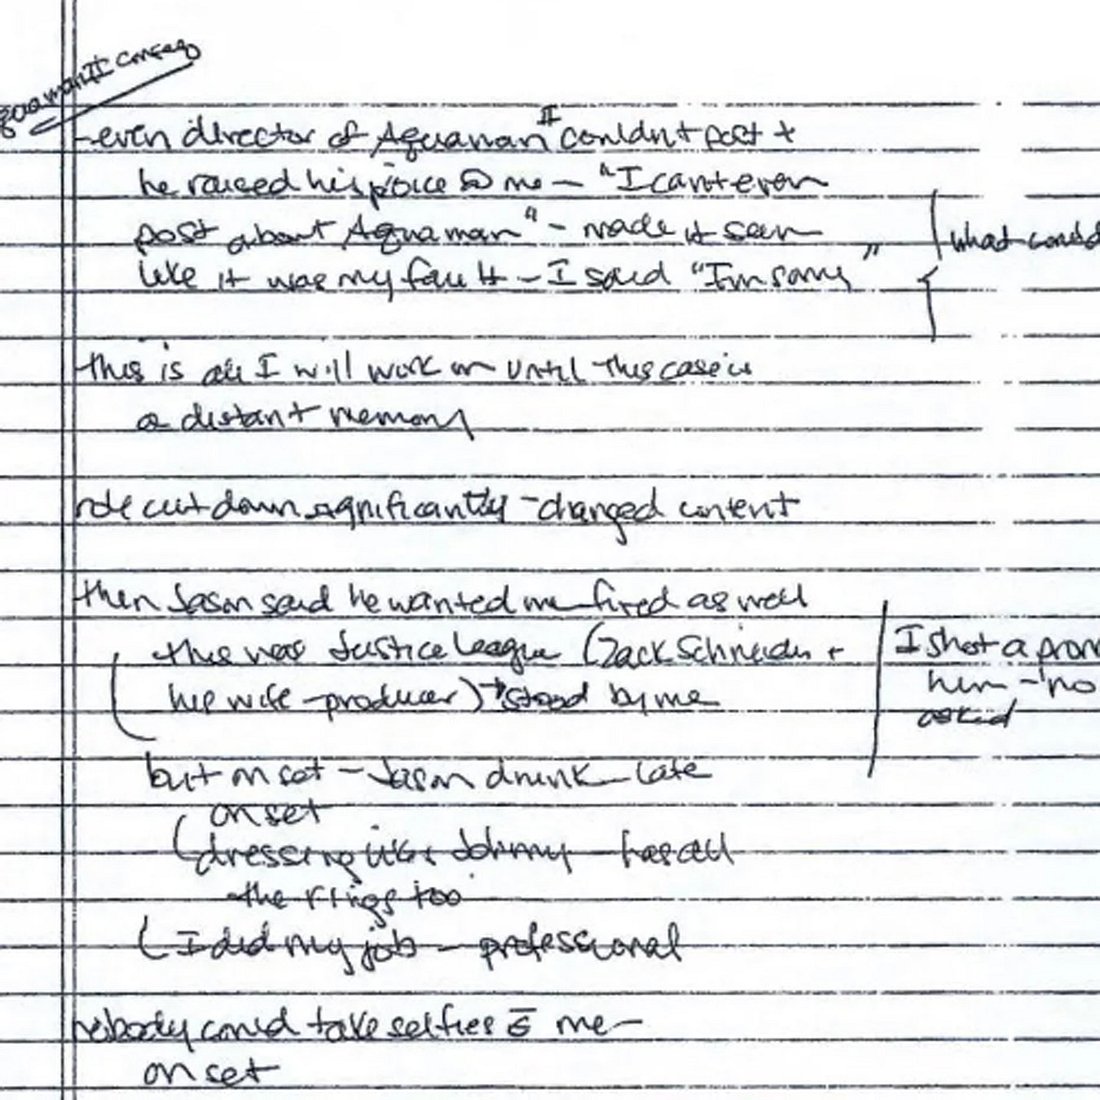 Aquaman II
- even director of Aquaman II couldn't post +
he raised his voice @ me — "I can't even
post about Aquaman" - made it seem
like it was my fault - I said "I'm sorry"
what could
this is all I will work on until this case is
a distant memory
role cut down significantly - changed content
then Jason said he wanted me fired as well
this was Justice League (Zack Schneider +
his wife - producer) → stood by me
I shot a
him - no
asked
but on set - Jason drunk - late
on set
(dressing like Johnny - has all
the rings too
(I did my job - professional
nobody could take selfies c̄ me -
on set